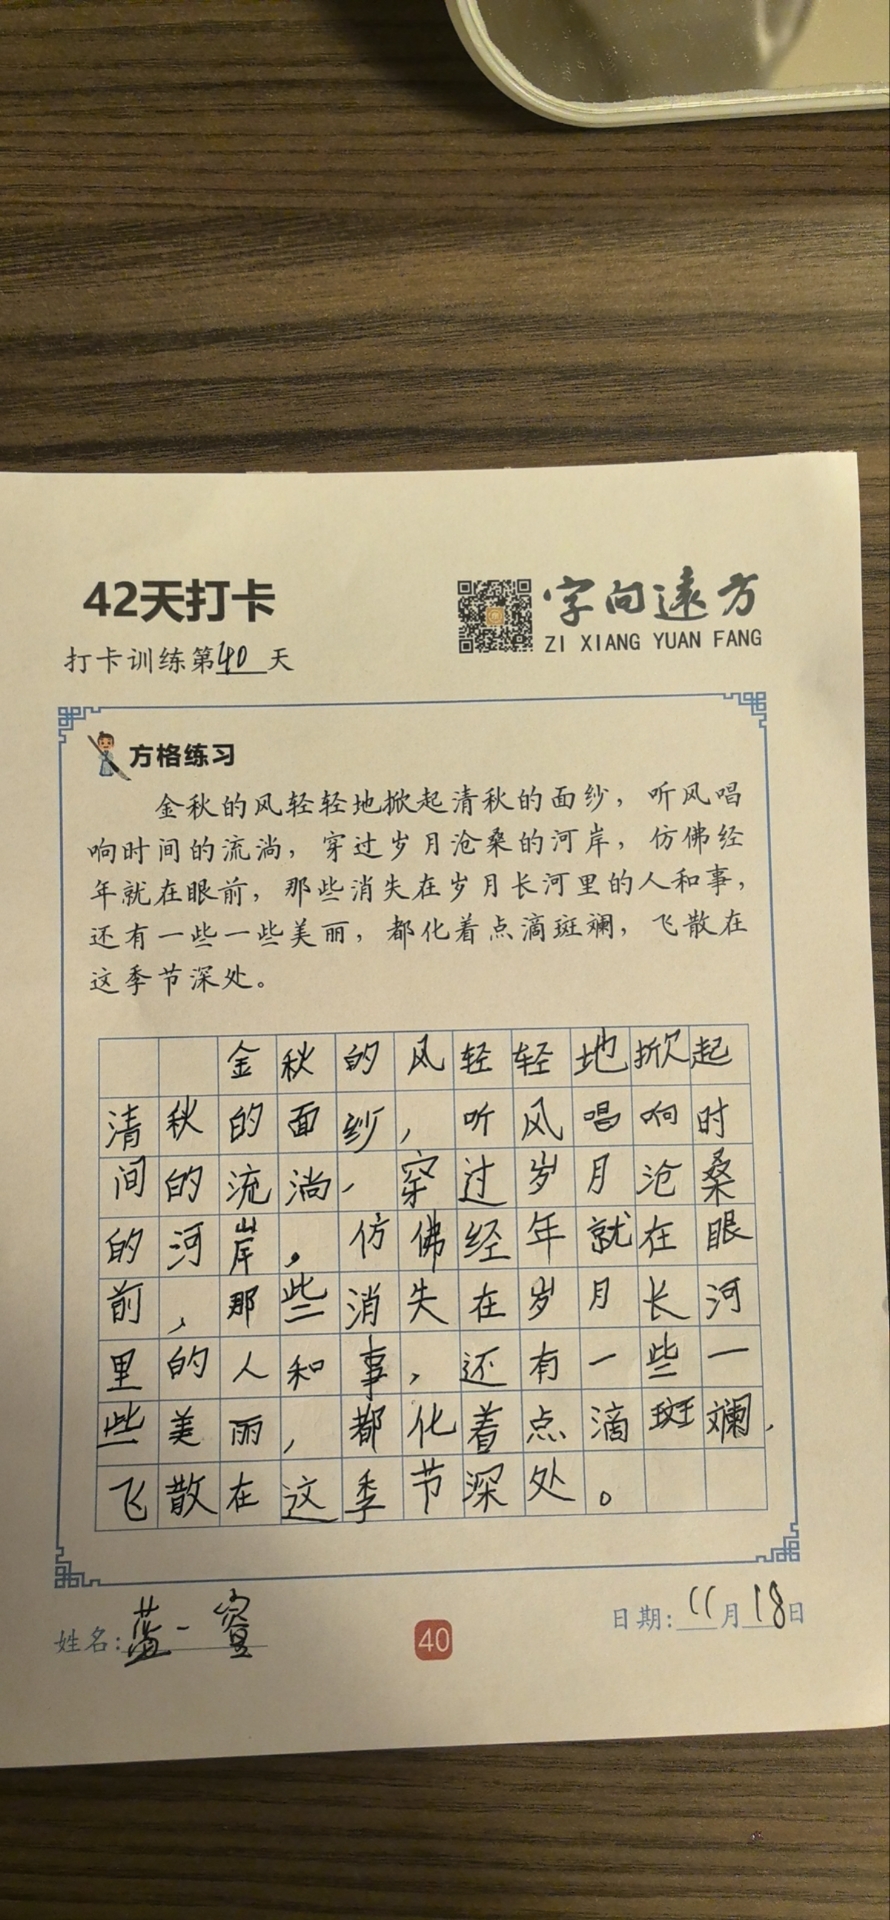 42天打卡
字向遠方
ZI XIANG YUAN FANG
打卡训练第40天
方格练习
金秋的风轻轻地掀起清秋的面纱，听风唱
响时间的流淌，穿过岁月沧桑的河岸，仿佛经
年就在眼前，那些消失在岁月长河里的人和事，
还有一些一些美丽，都化着点滴斑斓，飞散在
这季节深处。
金秋的风轻轻地掀起
清秋的面纱，听风唱响时
间的流淌，穿过岁月沧桑
的河岸，仿佛经年就在眼
前，那些消失在岁月长河
里的人和事，还有一些一
些美丽，都化着点滴斑斓，
飞散在这季节深处。
姓名：蓝一
40
日期：11月18日